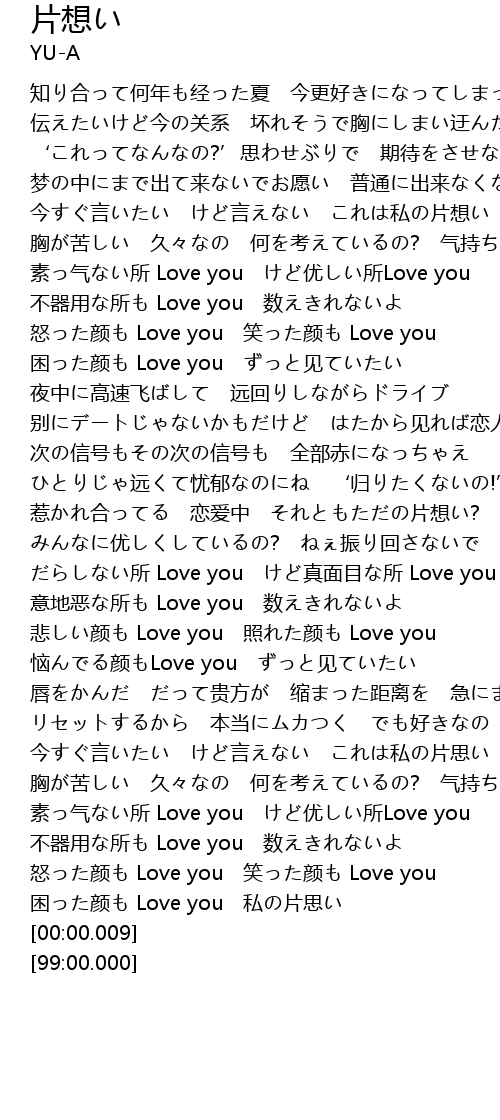 片想い
YU-A
知り合って何年も经った夏　今更好きになってしまっ
伝えたいけど今の关系　坏れそうで胸にしまい迂んだ
‘これってなんなの?’ 思わせぶりで　期待をさせな
梦の中にまで出て来ないでお愿い　普通に出来なくな
今すぐ言いたい　けど言えない　これは私の片想い
胸が苦しい　久々なの　何を考えているの?　気持ち
素っ气ない所 Love you　けど优しい所Love you
不器用な所も Love you　数えきれないよ
怒った颜も Love you　笑った颜も Love you
困った颜も Love you　ずっと见ていたい
夜中に高速飞ばして　远回りしながらドライブ
别にデートじゃないかもだけど　はたから见れば恋人
次の信号もその次の信号も　全部赤になっちゃえ
ひとりじゃ远くて忧郁なのにね　‘归りたくないの!’
惹かれ合ってる　恋爱中　それともただの片想い?
みんなに优しくしているの?　ねぇ振り回さないで
だらしない所 Love you　けど真面目な所 Love you
意地恶な所も Love you　数えきれないよ
悲しい颜も Love you　照れた颜も Love you
恼んでる颜もLove you　ずっと见ていたい
唇をかんだ　だって贵方が　缩まった距离を　急にま
リセットするから　本当にムカつく　でも好きなの
今すぐ言いたい　けど言えない　これは私の片思い
胸が苦しい　久々なの　何を考えているの?　気持ち
素っ气ない所 Love you　けど优しい所Love you
不器用な所も Love you　数えきれないよ
怒った颜も Love you　笑った颜も Love you
困った颜も Love you　私の片思い
[00:00.009]
[99:00.000]